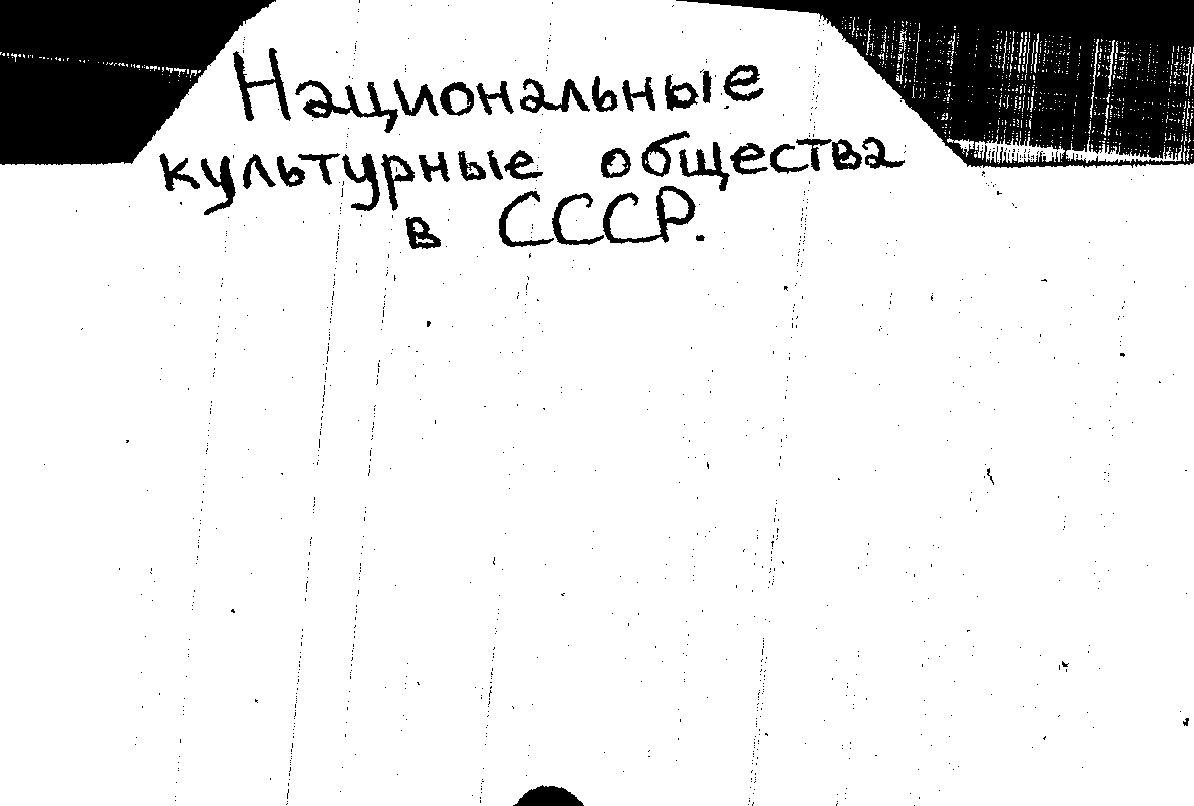 Национальные
культурные общества
в СССР.